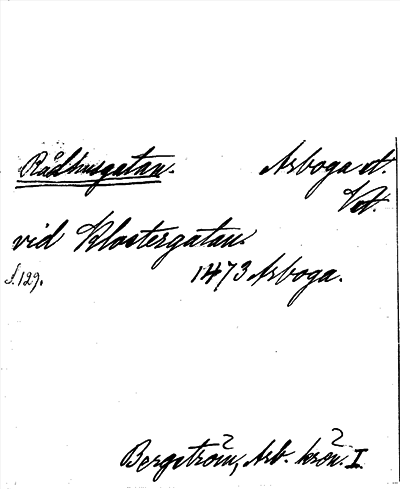 Rådhusgatan. Arboga st.
Vst.
vid Klostergatan.
s. 129. 1473 Arboga.
Bergström, Arb. krön. I.